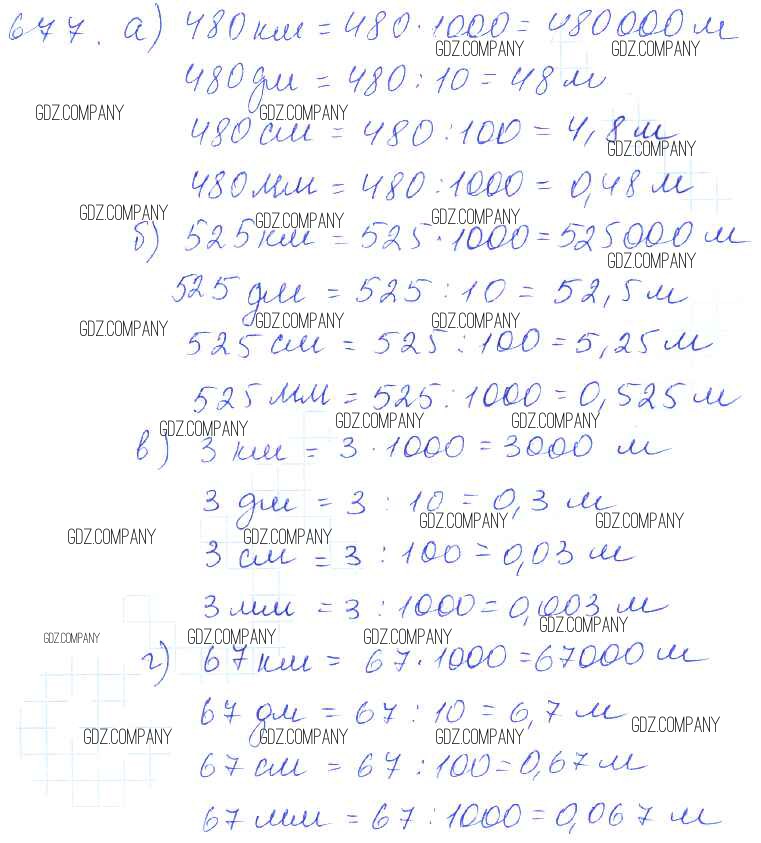 677. а) 480 км = 480 · 1000 = 480 000 м
GDZ.COMPANY GDZ.COMPANY
480 дм = 480 : 10 = 48 м
GDZ.COMPANY GDZ.COMPANY
480 см = 480 : 100 = 4,8 м
GDZ.COMPANY
480 мм = 480 : 1000 = 0,48 м
GDZ.COMPANY GDZ.COMPANY GDZ.COMPANY
б) 525 км = 525 · 1000 = 525 000 м
GDZ.COMPANY
525 дм = 525 : 10 = 52,5 м
GDZ.COMPANY GDZ.COMPANY GDZ.COMPANY
525 см = 525 : 100 = 5,25 м
525 мм = 525 : 1000 = 0,525 м
GDZ.COMPANY GDZ.COMPANY GDZ.COMPANY
в) 3 км = 3 · 1000 = 3000 м
3 дм = 3 : 10 = 0,3 м
GDZ.COMPANY GDZ.COMPANY GDZ.COMPANY GDZ.COMPANY
3 см = 3 : 100 = 0,03 м
3 мм = 3 : 1000 = 0,003 м
GDZ.COMPANY GDZ.COMPANY GDZ.COMPANY GDZ.COMPANY
г) 67 км = 67 · 1000 = 67000 м
67 дм = 67 : 10 = 6,7 м
GDZ.COMPANY GDZ.COMPANY GDZ.COMPANY GDZ.COMPANY
67 см = 67 : 100 = 0,67 м
67 мм = 67 : 1000 = 0,067 м